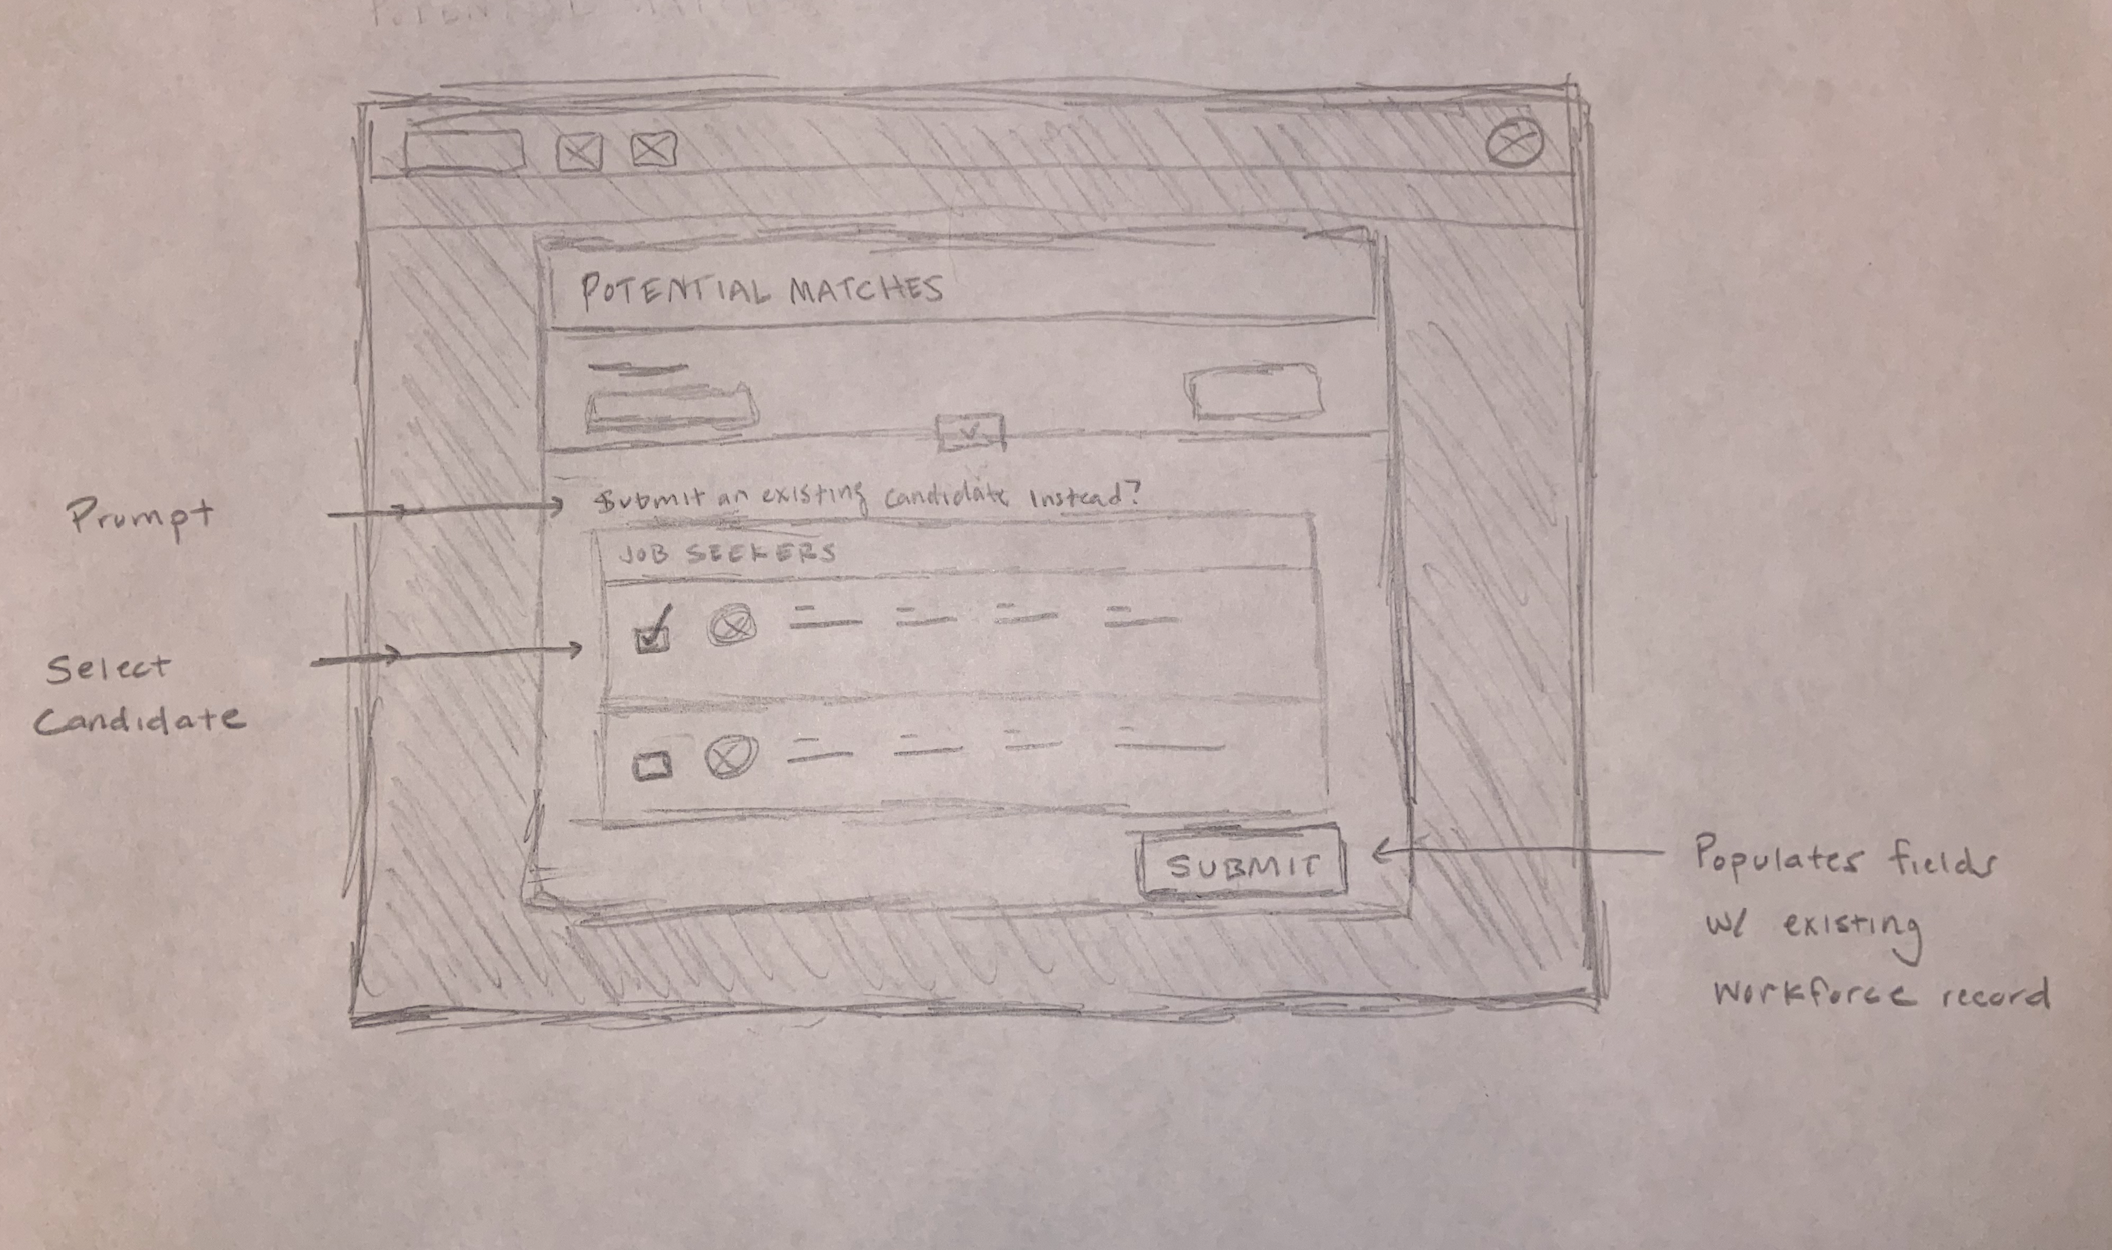 POTENTIAL MATCHES
Prompt
Submit an existing candidate instead?
JOB SEEKERS
Select
Candidate
SUBMIT
Populates fields
w/ existing
workforce record